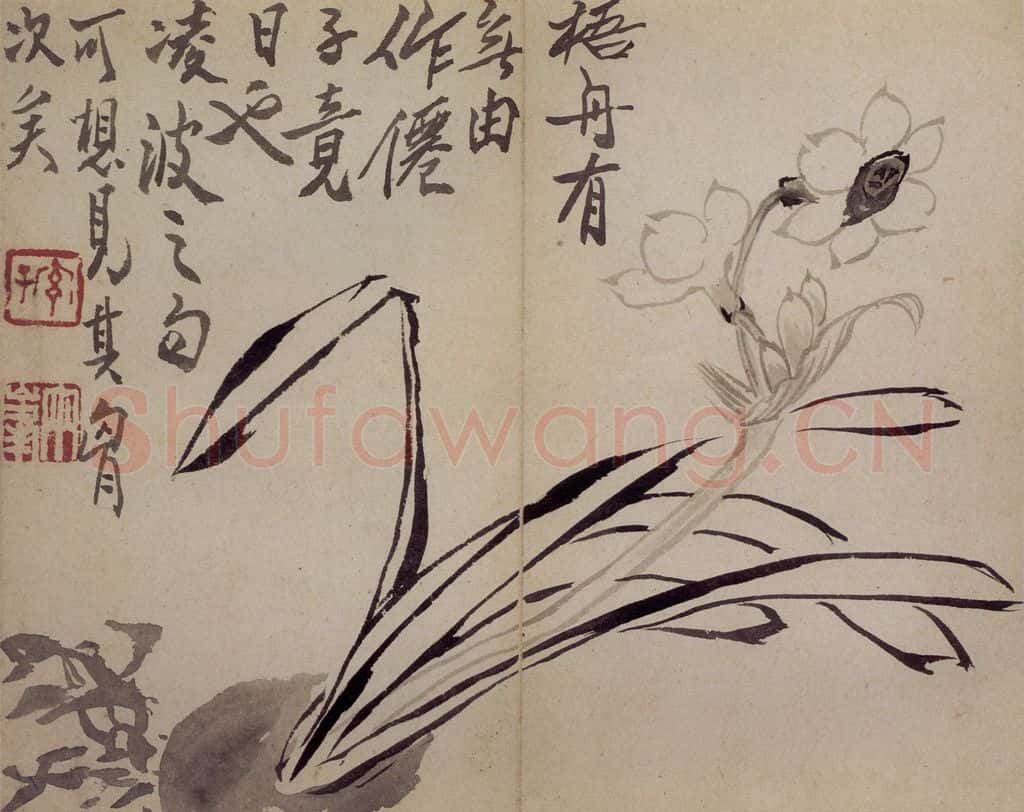 梧舟有
無由
作僊
子竟
日也
凌波之句
可想見其胷
次矣
Shufawang.CN